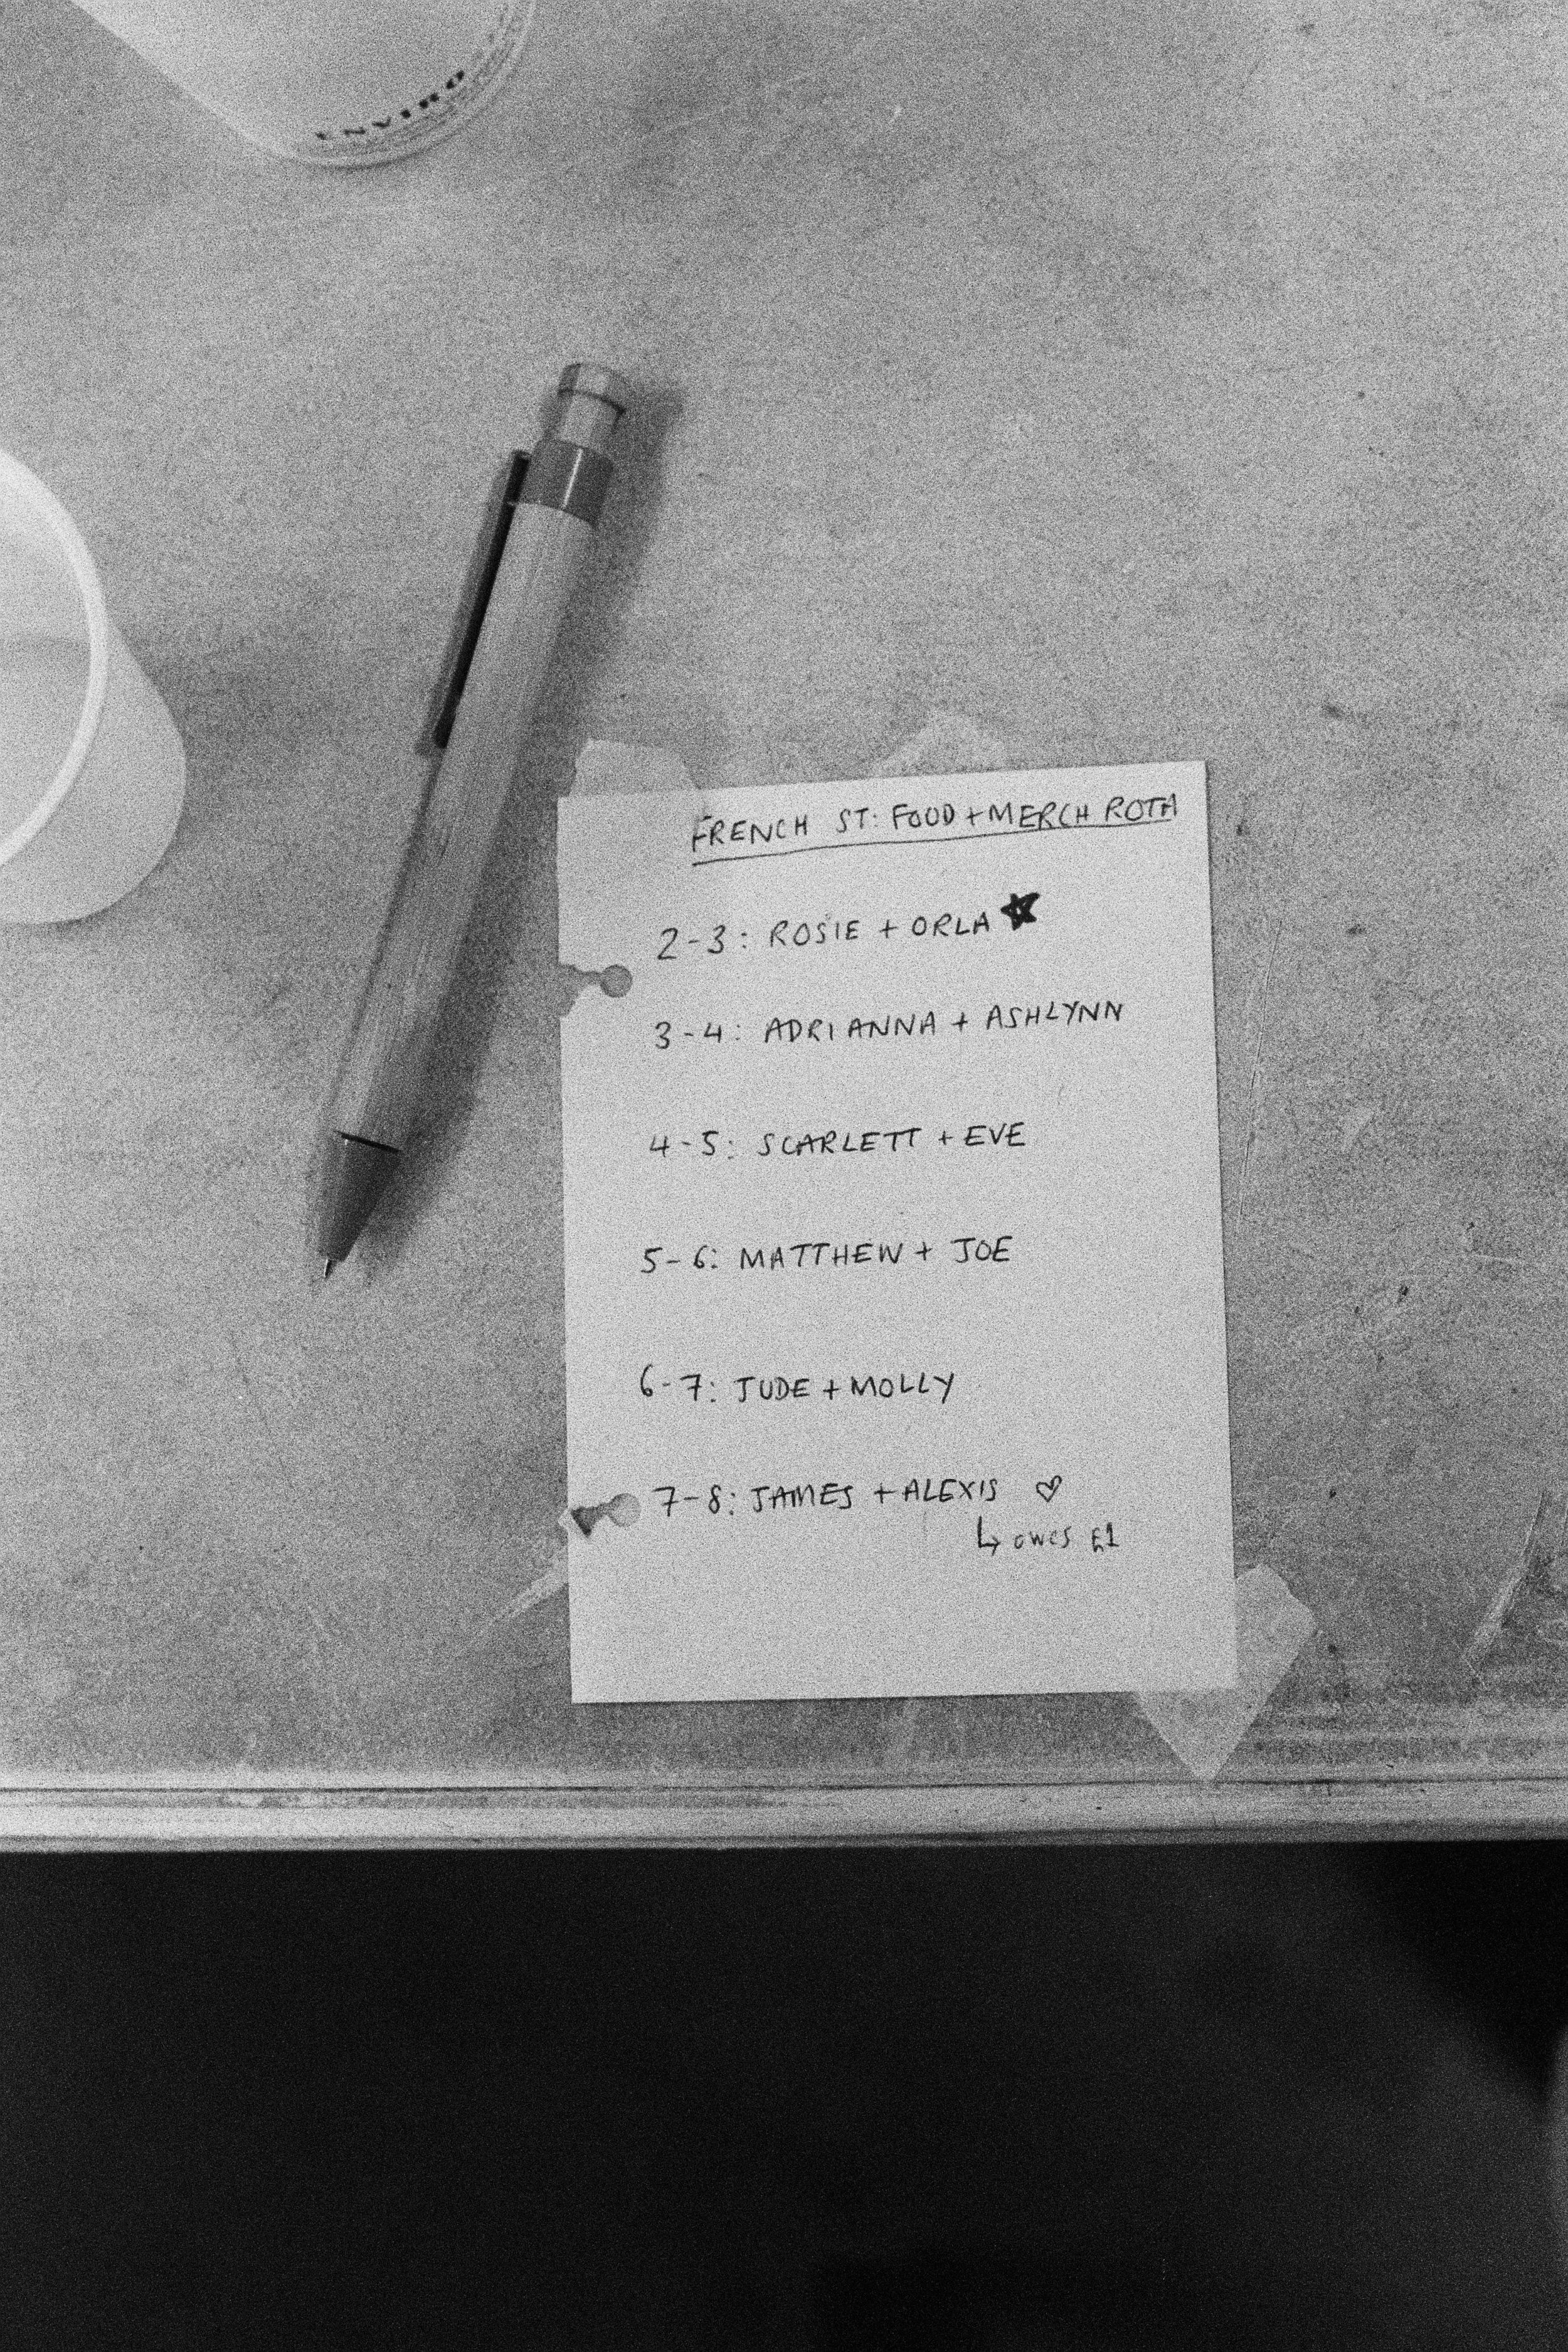 ENVIRO
FRENCH ST: FOOD + MERCH ROTA
2-3: ROSIE + ORLA ★
3-4: ADRIANNA + ASHLYNN
4-5: SCARLETT + EVE
5-6: MATTHEW + JOE
6-7: JUDE + MOLLY
7-8: JAMES + ALEXIS ♡
↳ owes £1